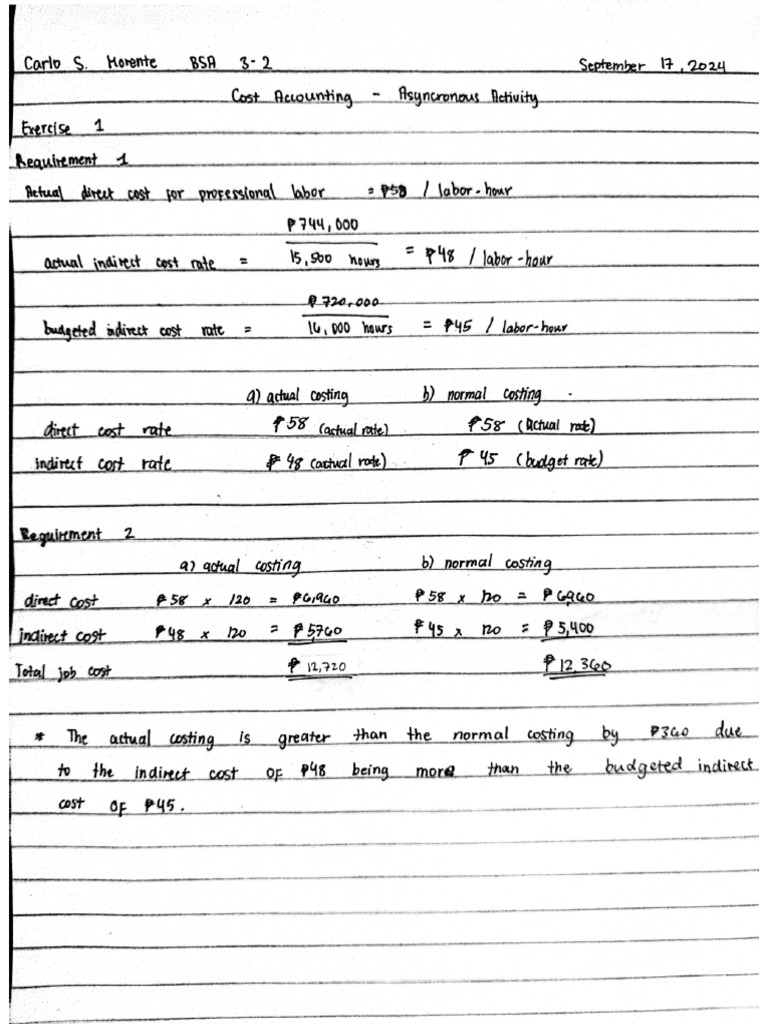 Carlo S. Morente BSA 3-2 September 17, 2024
Cost Accounting - Asyncronous Activity
Exercise 1
Requirement 1
Actual direct cost for professional labor = ₱58 / labor-hour
₱744,000
actual indirect cost rate = 15,500 hours = ₱48 / labor-hour
₱720,000
budgeted indirect cost rate = 16,000 hours = ₱45 / labor-hour
a) actual costing b) normal costing
direct cost rate ₱58 (actual rate) ₱58 (actual rate)
indirect cost rate ₱48 (actual rate) ₱45 (budget rate)
Requirement 2
a) actual costing b) normal costing
direct cost ₱58 x 120 = ₱6,960 ₱58 x 120 = ₱6960
indirect cost ₱48 x 120 = ₱5760 ₱45 x 120 = ₱5,400
Total job cost ₱12,720 ₱12,360
* The actual costing is greater than the normal costing by ₱360 due
to the indirect cost of ₱48 being more than the budgeted indirect
cost of ₱45.